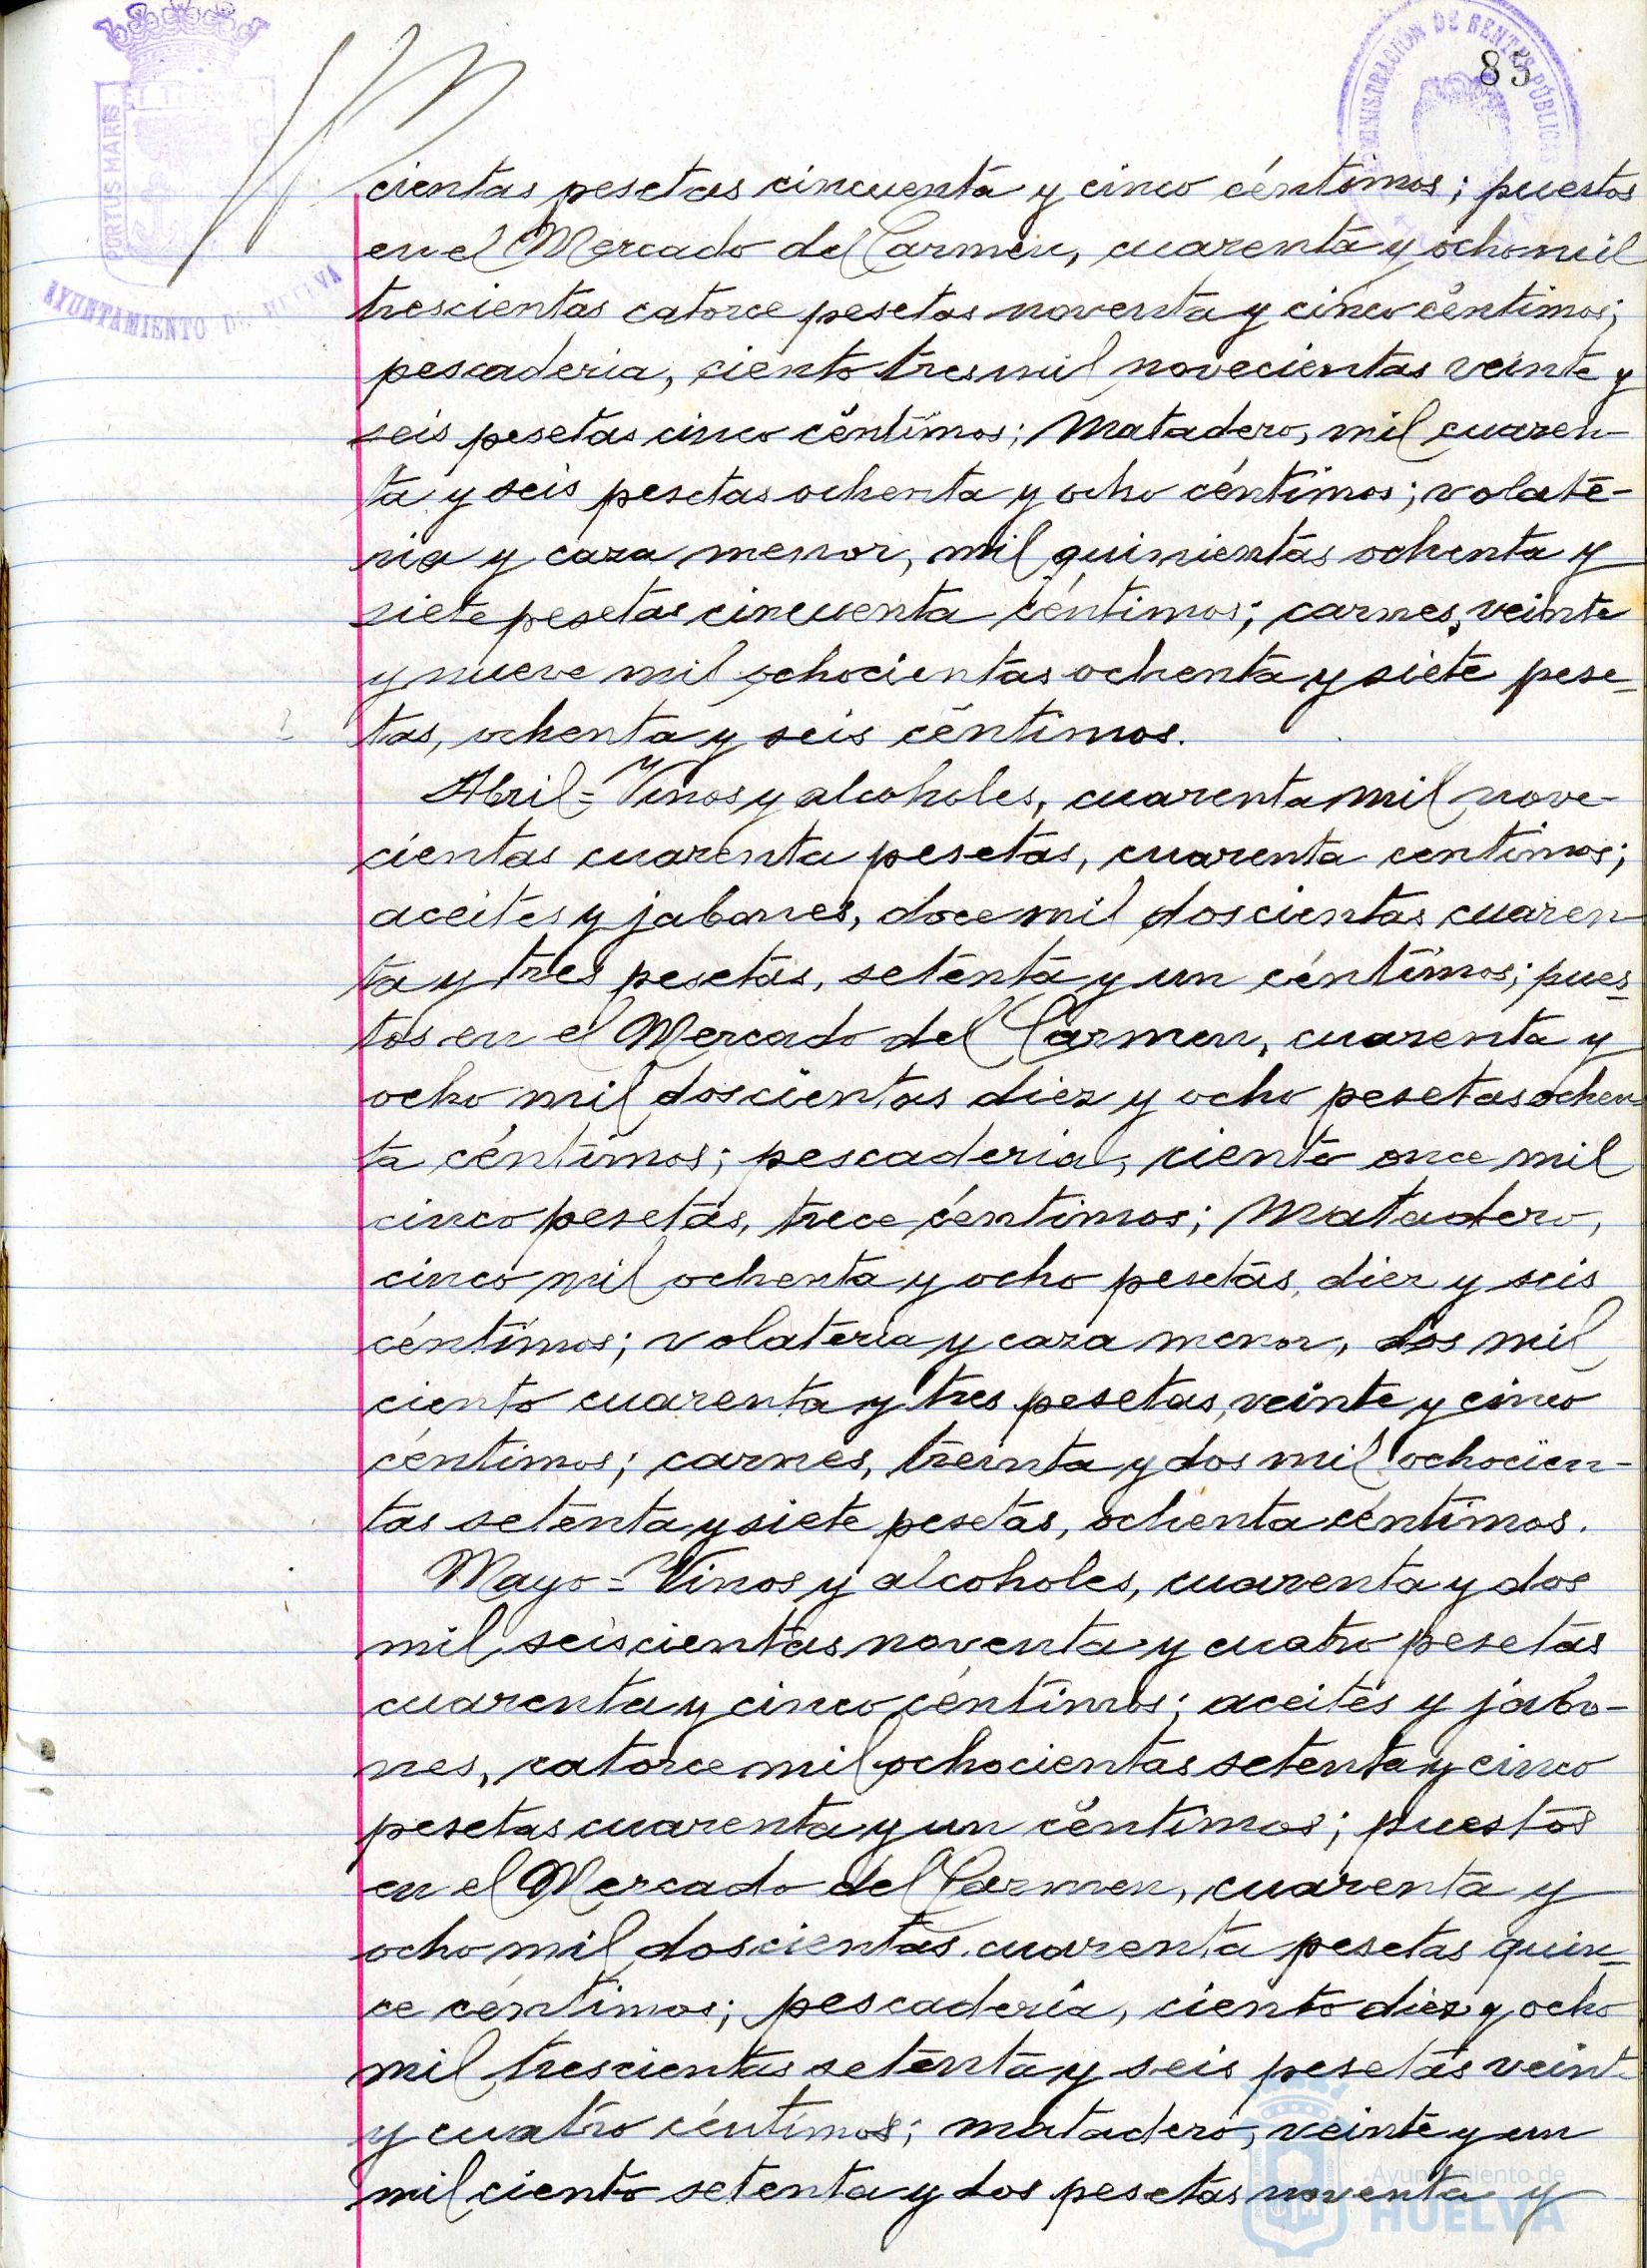 85
PORTUS MARIS
AYUNTAMIENTO DE HUELVA
ADMINISTRACIÓN DE RENTAS PÚBLICAS
cientas pesetas cincuenta y cinco céntimos; puestos
en el Mercado del Carmen, cuarenta y ocho mil
trescientas catorce pesetas noventa y cinco céntimos;
pescaderia, ciento tres mil novecientas veinte y
seis pesetas cinco céntimos; Matadero, mil cuaren-
ta y seis pesetas ochenta y ocho céntimos; volate-
ria y caza menor, mil quinientas ochenta y
siete pesetas cincuenta céntimos; carnes, veinte
y nueve mil ochocientas ochenta y siete pese-
tas, ochenta y seis céntimos.
Abril = Vinos y alcoholes, cuarenta mil nove-
cientas cuarenta pesetas, cuarenta centimos;
aceites y jabones, doce mil doscientas cuaren
ta y tres pesetas, setenta y un céntimos; pues-
tos en el Mercado del Carmen, cuarenta y
ocho mil doscientas diez y ocho pesetas ochen-
ta céntimos; pescaderia, ciento once mil
cinco pesetas, trece céntimos; Matadero,
cinco mil ochenta y ocho pesetas, diez y seis
céntimos; volateria y caza menor, dos mil
ciento cuarenta y tres pesetas, veinte y cinco
céntimos; carnes, treinta y dos mil ochocien-
tas setenta y siete pesetas, ochenta céntimos.
Mayo = Vinos y alcoholes, cuarenta y dos
mil seiscientas noventa y cuatro pesetas
cuarenta y cinco céntimos; aceites y jabo-
nes, catorce mil ochocientas setenta y cinco
pesetas cuarenta y un céntimos; puestos
en el Mercado del Carmen, cuarenta y
ocho mil doscientas cuarenta pesetas quin-
ce céntimos; pescaderia, ciento diez y ocho
mil trescientas setenta y seis pesetas veinte
y cuatro céntimos; matadero, veinte y un
mil ciento setenta y dos pesetas noventa y
Ayuntamiento de
HUELVA